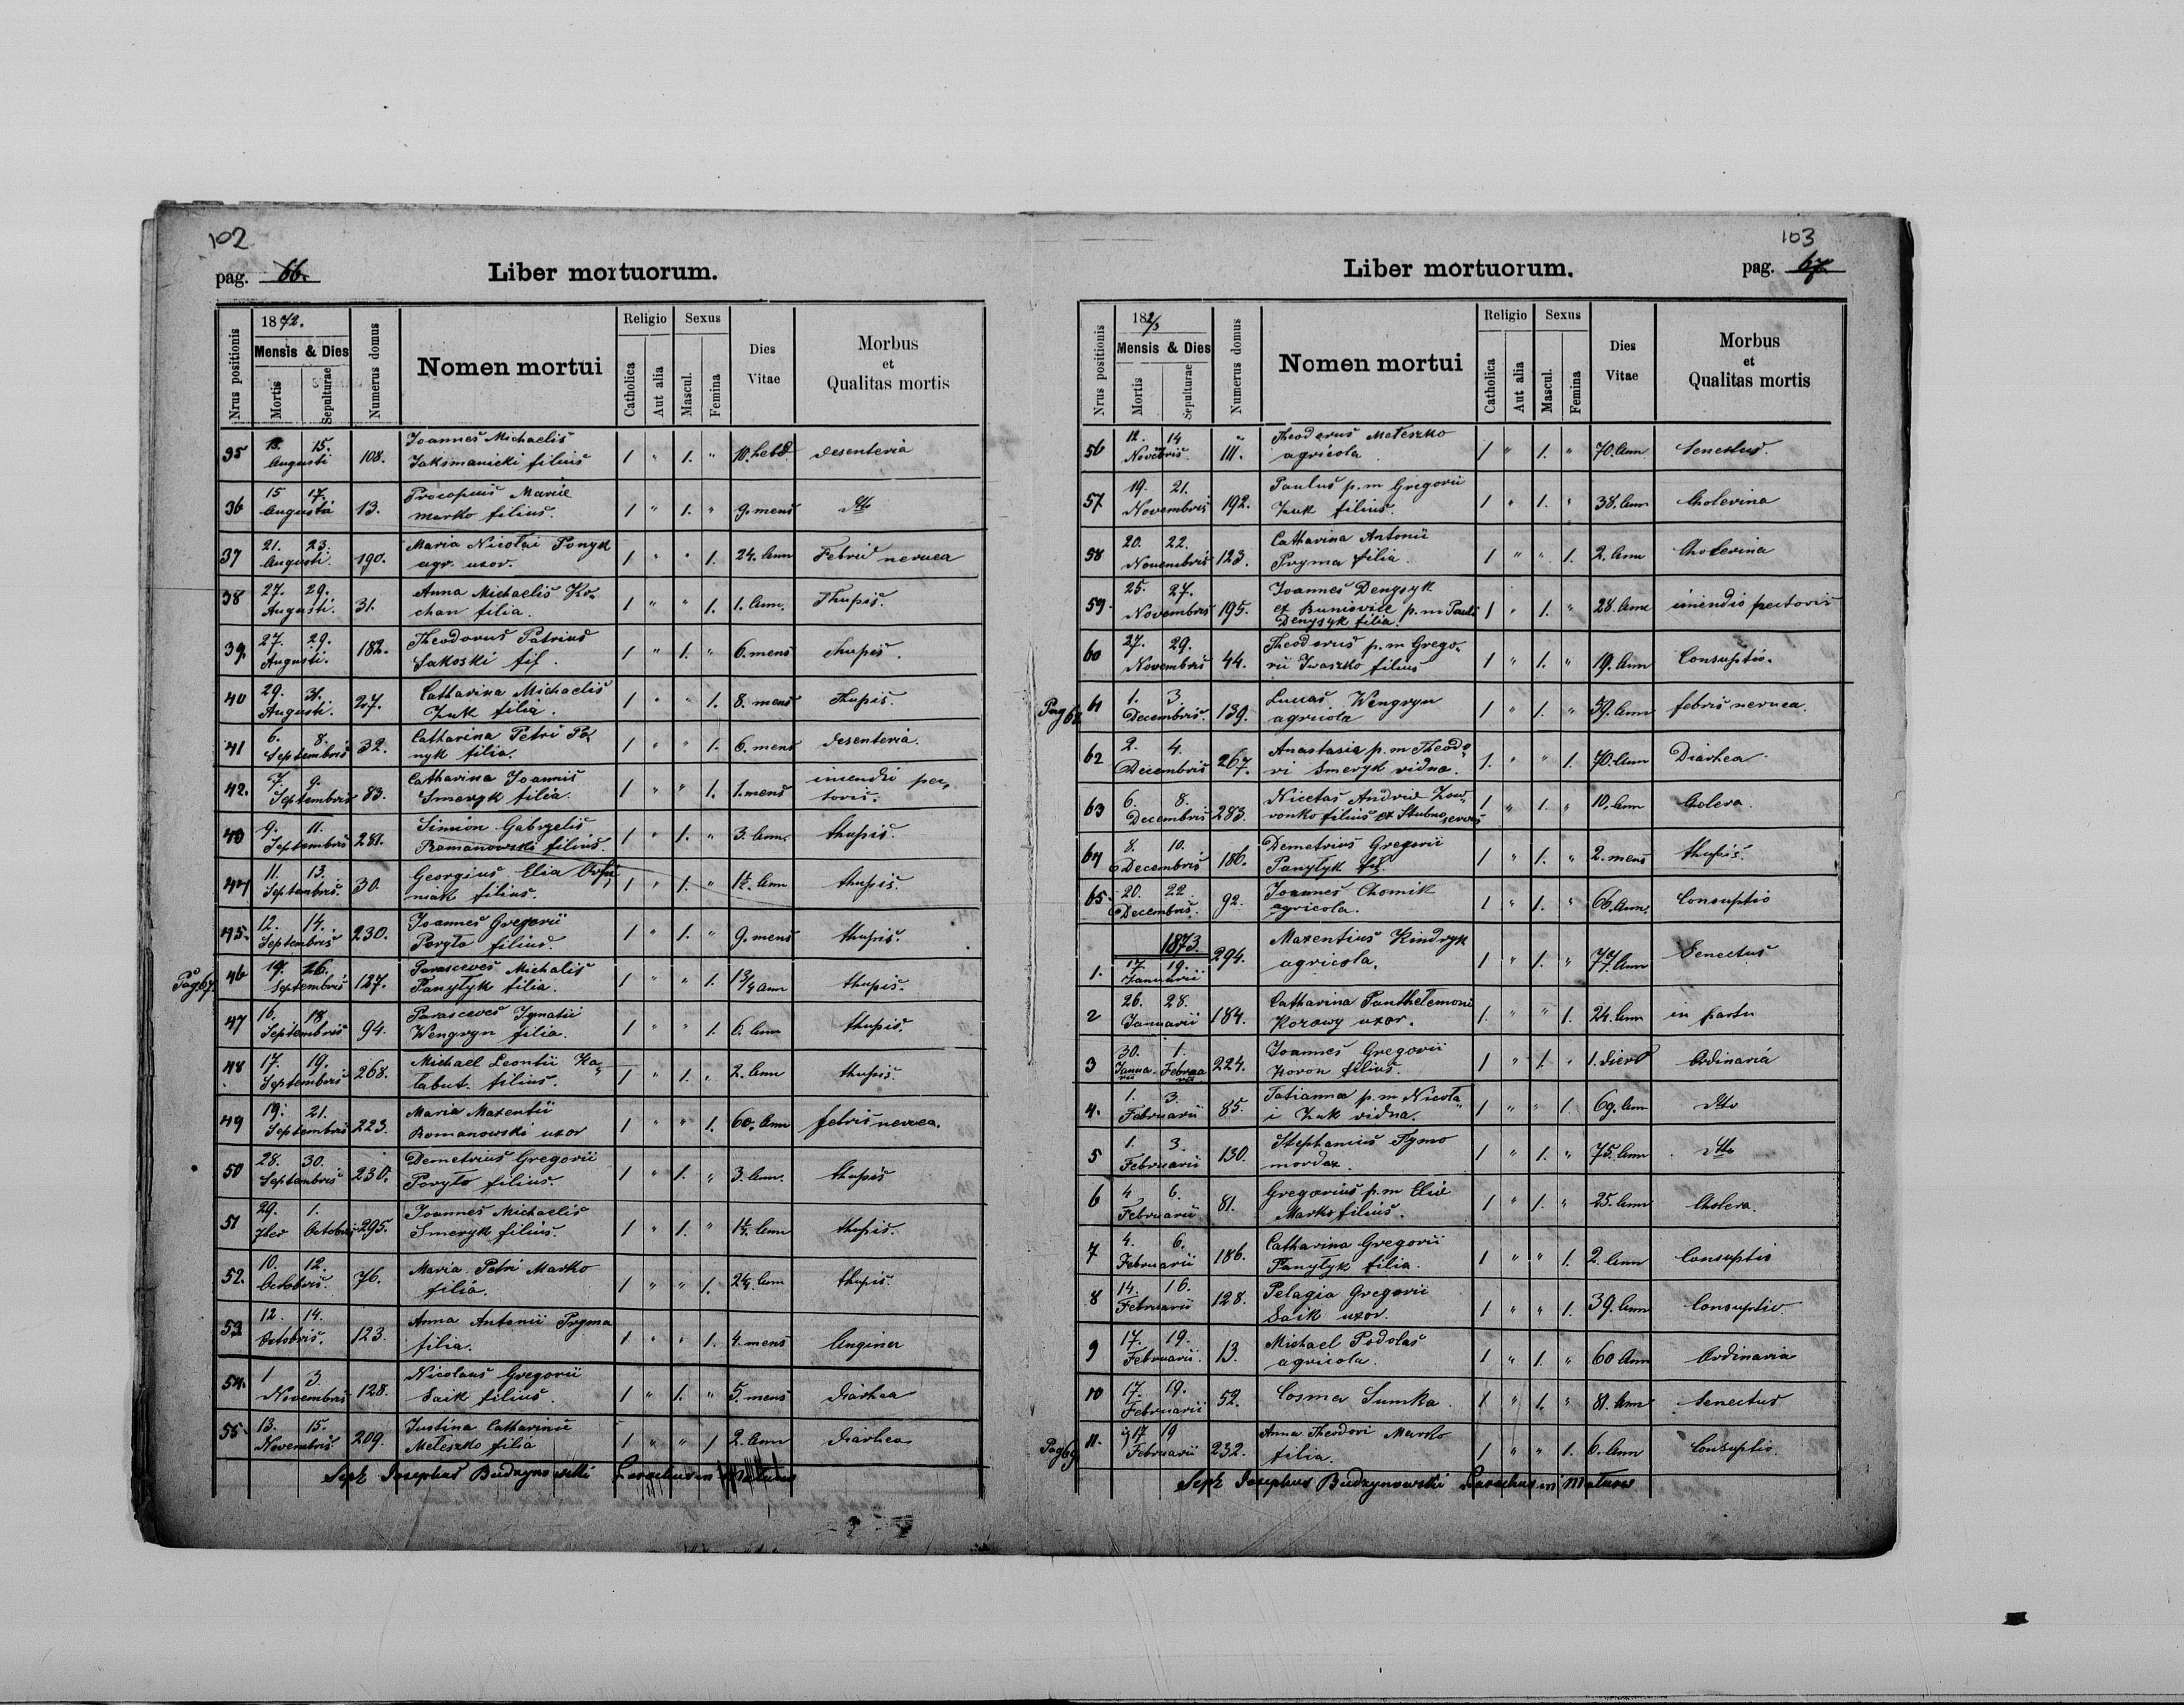 102
pag. 66.
Liber mortuorum.
Nrus positionis
1872.
Mensis & Dies
Mortis
Sepulturae
Numerus domus
Nomen mortui
Religio
Catholica
Aut alia
Sexus
Mascul.
Femina
Dies
Vitae
Morbus
et
Qualitas mortis
35 13. 15. Augusti 108. Joannes Michaelis 1 " 1. " 10. hebd. desenteria
Jaksmanicki filius
36 15 17. Augusti 13. Procopius Mariae 1 " 1. " 9. mens dtto
Marko filius.
37 21. 23. Augusti. 190. Maria Nicolai Ponyk 1 " " 1. 24. Ann Febris nervea
agr. uxor.
38 27. 29. Augusti. 31. Anna Michaelis Ko„ 1 " " 1. 1. Ann. Thupis.
chan filia.
39. 27. 29. Augusti. 182. Theodorus Patrius 1 " 1. " 6. mens thupis.
Sakoski fil.
40 29. 31. Augusti. 27. Catharina Michaelis 1 " " 1. 8. mens Thupis.
Zuk filia.
41 6. 8. Septembris 32. Catharina Petri Po 1 " " 1. 6. mens desenteria.
nyk filia.
42. 7 9. Septembris 83. Catharina Joannis 1 " " 1. 1. mens incendii pec„
Smeryk filia. toris.
43 9. 11. Septembris 281. Simion Gabryelis 1 " 1. " 3. Ann. thupis.
Romanowski filius.
44 11. 13. Septembris. 30. Georgius Elia 1 " 1. " 1½. Ann thupis.
niak filius.
45. 12. 14. Septembris 230. Joannes Gregorii 1 " 1. " 9. mens thupis.
Poryto filius.
Pag 67. 46 19. 26. Septembris 127. Parasceves Michalis 1 " " 1. 1¾ Ann thupis.
Panylyk filia.
47 16. 18. Septembris 94. Parasceves Ignatii 1 " " 1. 6. Ann thupis.
Wengryn filia.
48 17. 19. Septembris 268. Michael Leontii Ka„ 1 " 1. " 2. Ann thupis.
labut. filius.
49 19. 21. Septembris 223. Maria Maxentii 1 " " 1. 60. Ann febris nervea.
Romanowski uxor
50 28. 30. Septembris 230. Demetrius Gregorii 1 " 1. " 3. Ann. thupis
Poryto filius.
51 29. 1. 7ber Octobris 295. Joannes Michaelis 1 " 1. " 1½. Ann thupis.
Smeryk filius.
52. 10. 12. Octobris. 76. Maria Petri Marko 1 " " 1. 2¼. Ann thupis.
filia.
53. 12. 14. Octobris. 123. Anna Antonii Pryma 1 " " 1. 4. mens Anginer
filia.
54. 1 3. Novembris 128. Nicolaus Gregorii 1 " 1. " 5. mens diarhea
Saik filius.
55. 13. 15. Novembris 209. Justina Catharinae 1 " " 1 2. Ann diarhea
Meleszko filia
Sept Josephus Budzynowski Parochus in Maturow
103
pag. 67
Liber mortuorum.
Nrus positionis
182/3
Mensis & Dies
Mortis
Sepulturae
Numerus domus
Nomen mortui
Religio
Catholica
Aut alia
Sexus
Mascul.
Femina
Dies
Vitae
Morbus
et
Qualitas mortis
56 12. 14 Novebris. 111. Theodorus Meleszko 1 " 1. " 70. Ann Senectus.
agricola
57 19. 21. Novembris 192. Paulus p.m Gregorii 1 " 1. " 38. Ann Cholerina
Zuk filius.
58 20. 22. Novembris 123. Catharina Antonii 1 " " 1. 2. Ann Cholerina
Pryma filia.
59. 25. 27. Novembris 195. Joannes Denysyk 1 " 1. " 28. Ann incendio pectoris
ex Buniovice p.m Pauli
Denysyk filia.
60 27. 29. Novembris 44. Theodorus p.m Grego„ 1 " 1. " 19. Ann Consuptio.
rii Iwaszko filius
Pag 68 61 1. 3 Decembris. 139. Lucas Wengryn 1 " 1. " 39. Ann febris nervea.
agricola
62 2. 4. Decembris 267. Anastasia p.m Theodo„ 1. " " 1. 70. Ann Diarhea
ri Smeryk vidua.
63 6. 8. Decembris 283. Nicetas Andrie 1 " 1. " 10. Ann Colera.
ronko filius ex Stubno servus
64 8. 10. Decembris 186. Demetrius Gregorii 1 " 1. " 2. mens thupis.
Panylyk fil.
65. 20. 22 Decembris. 92. Joannes Chomik 1 " 1. " 66. Ann. Consuptio
agricola.
1873.
1. 17. 19. Januarii 294. Maxentius Kindryk 1 " 1. " 77. Ann Senectus
agricola.
2 26. 28. Januarii 184. Catharina Panthelemoni 1. " " 1. 24. Ann in partu
Korowy uxor.
3 30. 1. Janua„rii Februarii 224. Joannes Gregorii 1 " 1. " 1. dierd Ordinaria
Koron filius.
4. 1. 3. Februarii 85. Tatianna p.m Nicola„ 1 " " 1. 69. Ann dtto
i Zuk vidua.
5 1. 3. Februarii 130. Stephanius Tymo 1 " 1. " 75. Ann dtto
mordax.
6 4 6. Februarii 81. Gregorius p.m Elie 1 " 1. " 25. Ann Cholera.
Marko filius.
7 4. 6. Februarii 186. Catharina Gregorii 1 " " 1. 2. Ann Consuptio
Panylyk filia.
8 14. 16. Februarii 128. Pelagia Gregorii 1 " " 1. 39. Ann Consuptio
Saik uxor.
9 17. 19. Februarii. 13. Michael Podolas 1 " 1. " 60 Ann Ordinaria
agricola.
10 17. 19. Februarii 52. Cosma Sumka 1 " 1. " 81. Ann Senectus
Pag 69 11. 17. 19 Februarii 232. Anna Theodori Marko 1 " " 1. 6. Ann Consuptio.
filia.
Sept Josephus Budzynowski Parochus in Maturow